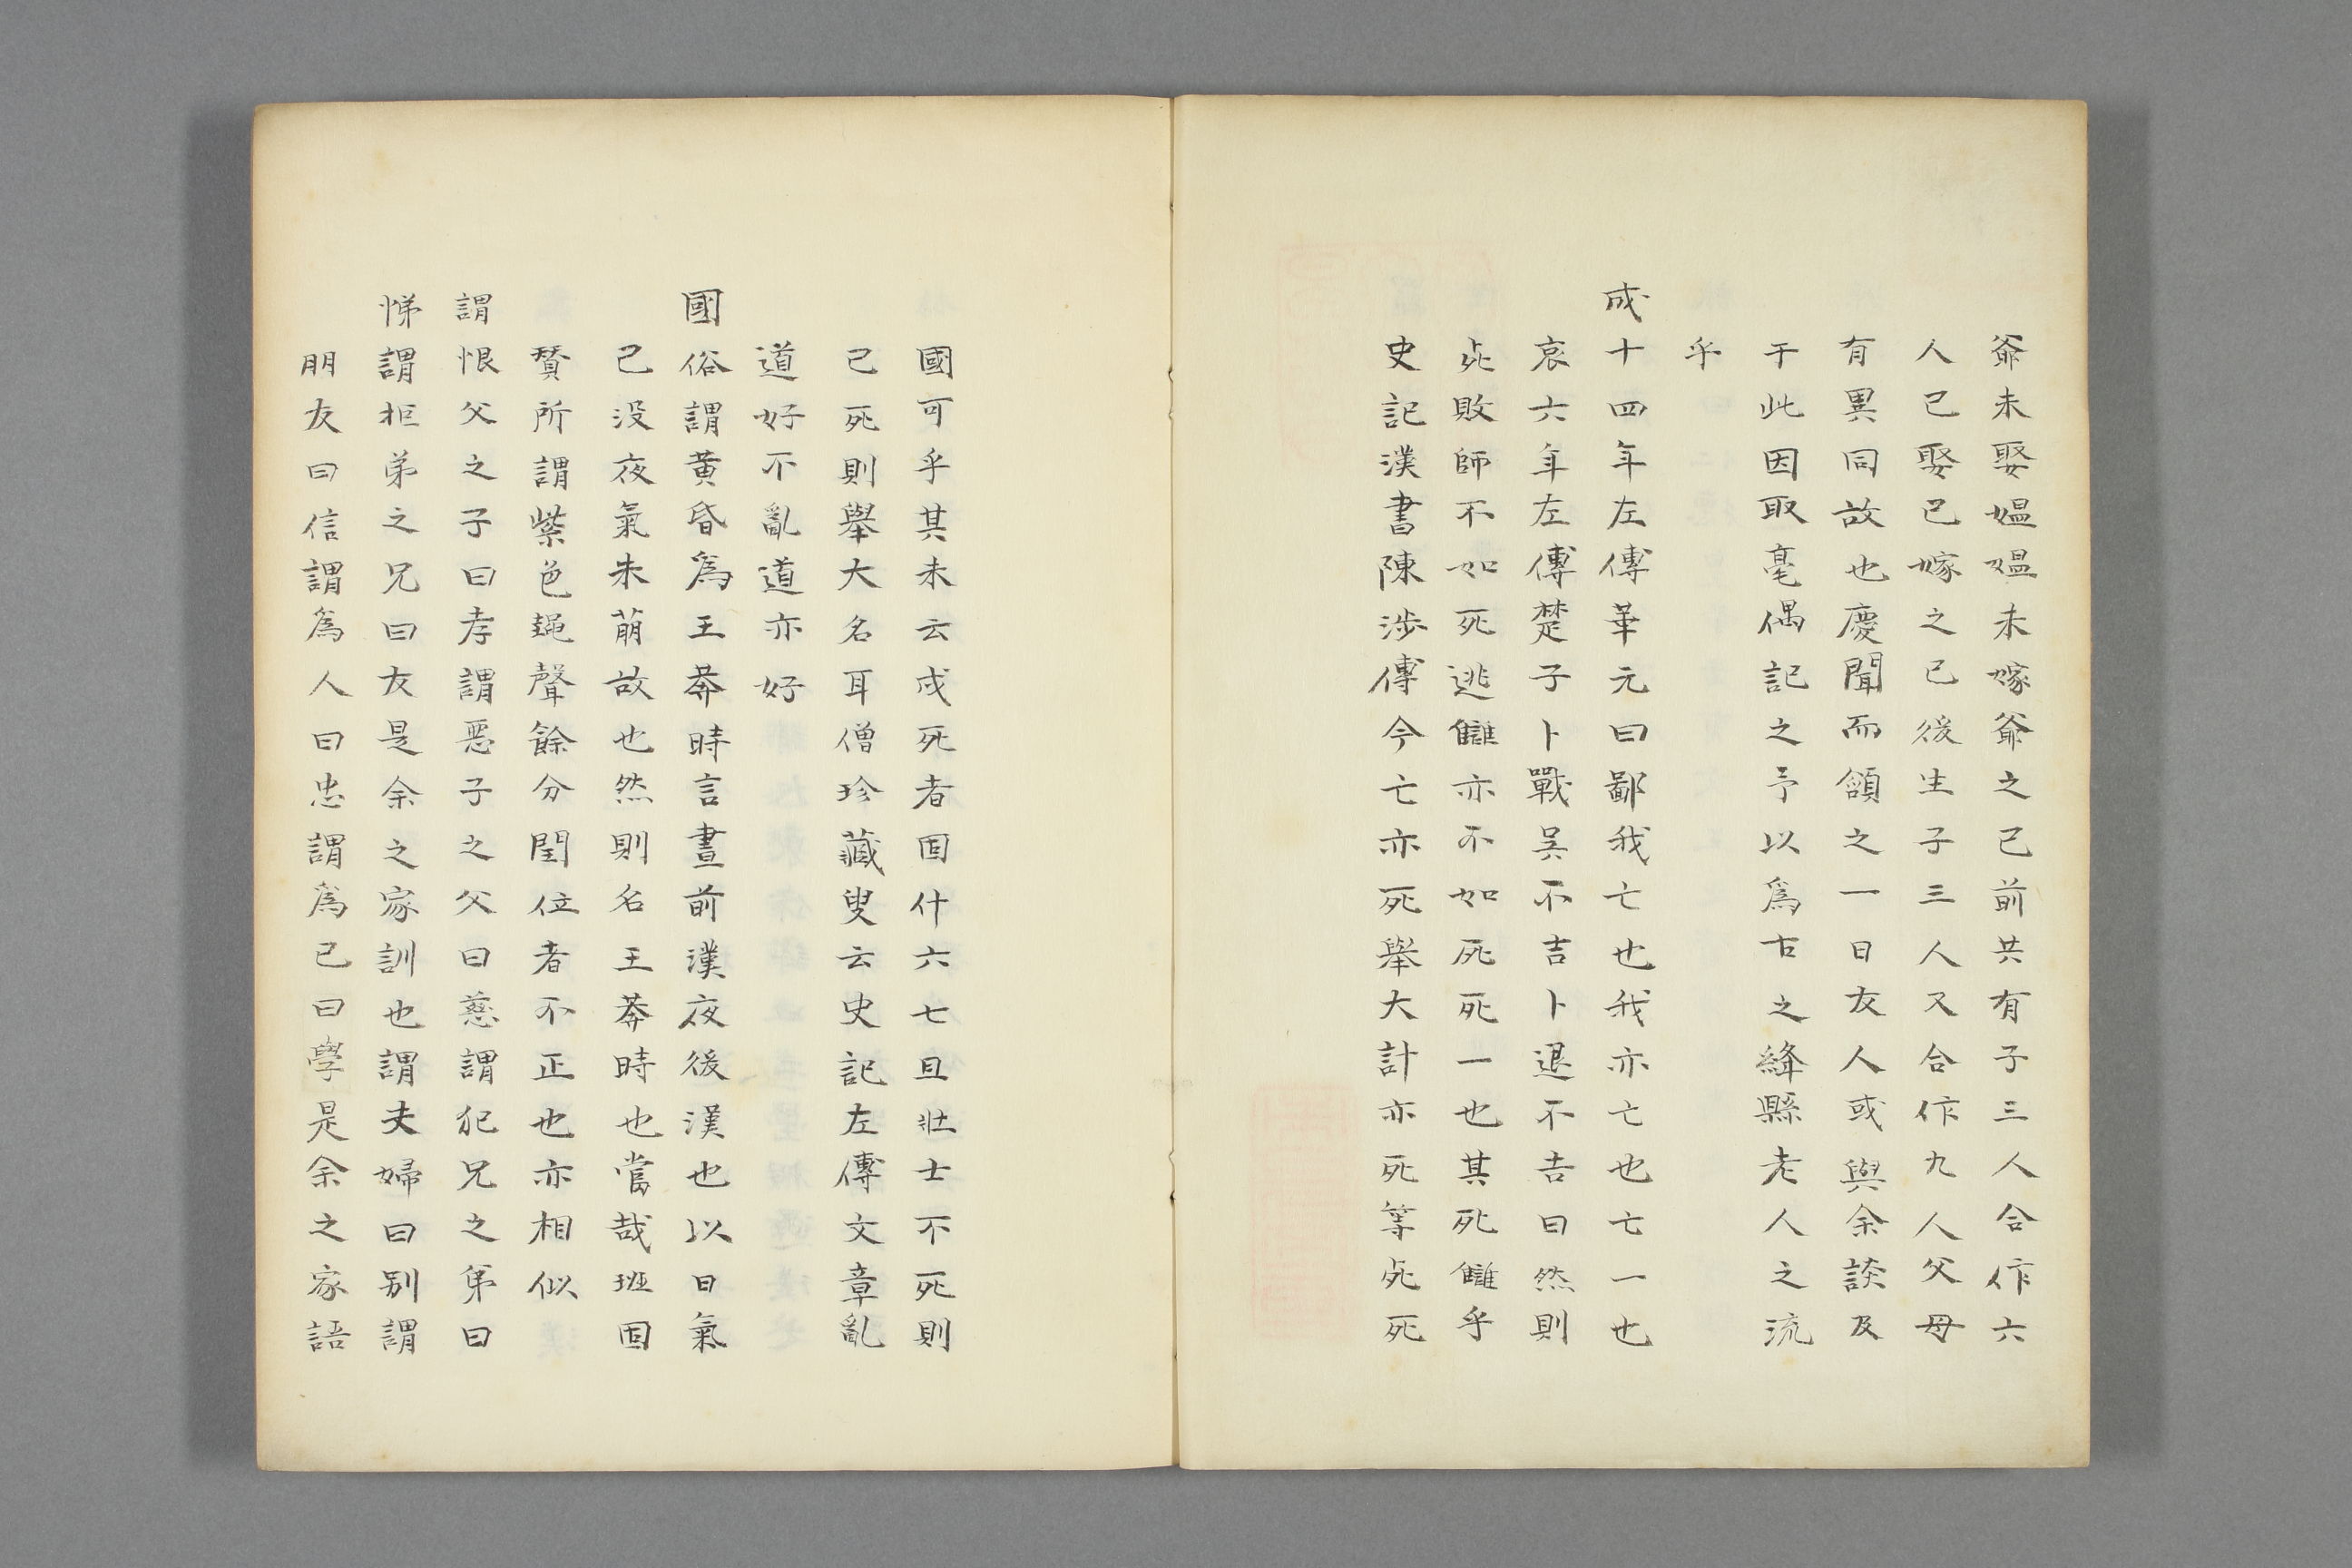 爺未娶媼媼未嫁爺之已前共有子三人合作六
人已娶已嫁之已後生子三人又合作九人父母
有異同故也慶聞而頷之一日友人或與余談及
于此因取毫偶記之予以為古之絳縣老人之流
乎
成十四年左傳華元曰鄙我亡也我亦亡也亡一也
哀六年左傳楚子卜戰吳不吉卜退不吉曰然則
死敗師不如死逃讎亦不如死死一也其死讎乎
史記漢書陳涉傳今亡亦死舉大計亦死等死死
國可乎其未云戍死者固什六七且壯士不死則
已死則舉大名耳僧珍藏叟云史記左傳文章亂
道好不亂道亦好
國俗謂黄昏爲王莽時言晝前漢夜後漢也以日氣
已没夜氣未萠故也然則名王莽時也當哉班固
賛所謂紫色䵷聲餘分閏位者不正也亦相似
謂恨父之子曰孝謂惡子之父曰慈謂犯兄之弟曰
悌謂拒弟之兄曰友是余之家訓也謂夫婦曰别謂
朋友曰信謂爲人曰忠謂爲已曰學是余之家語